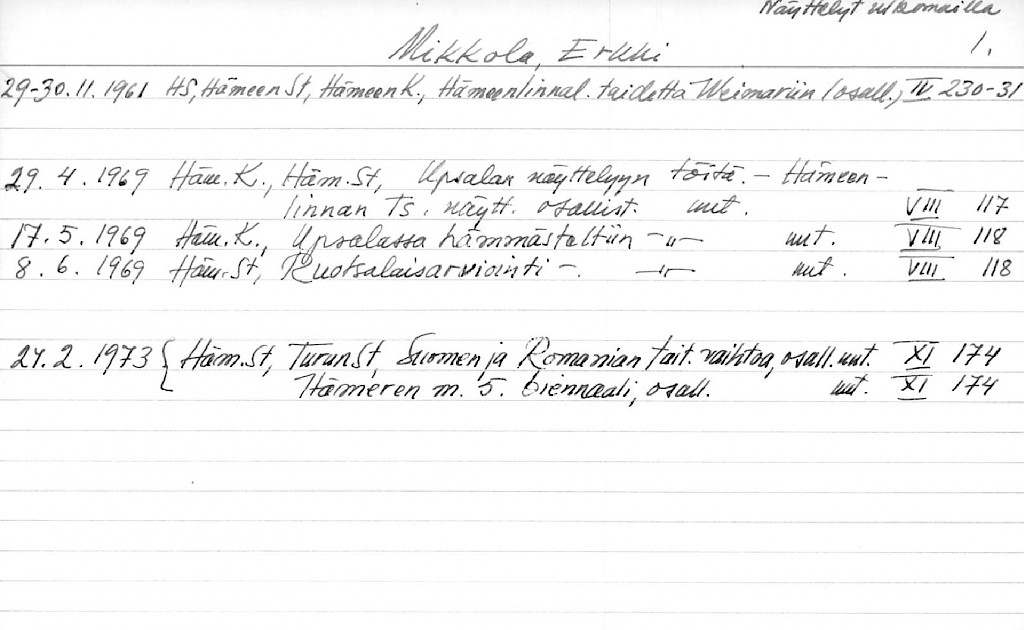 Näyttelyt ulkomailla
1.
Mikkola, Erkki
29-30.11.1961 HS, Hämeen St, Hämeen K., Hämeenlinnal. taidetta Weimariin (osall., IV 230-31
29.4.1969 Häm.K., Häm.St, Upsalan näyttelyyn töitä. - Hämeen-
linnan Ts. näytt. osallist. uut. VIII 117
17.5.1969 Häm.K., Upsalassa hämmästeltiin -"- uut. VIII 118
8.6.1969 Häm.St, Ruotsalaisarviointi -. -"- uut. VIII 118
27.2.1973 { Häm.St, Turun St, Suomen ja Romanian tait. vaihtoa, osall. uut. XI 174
Itämeren m. 5. biennaali, osall. uut. XI 174